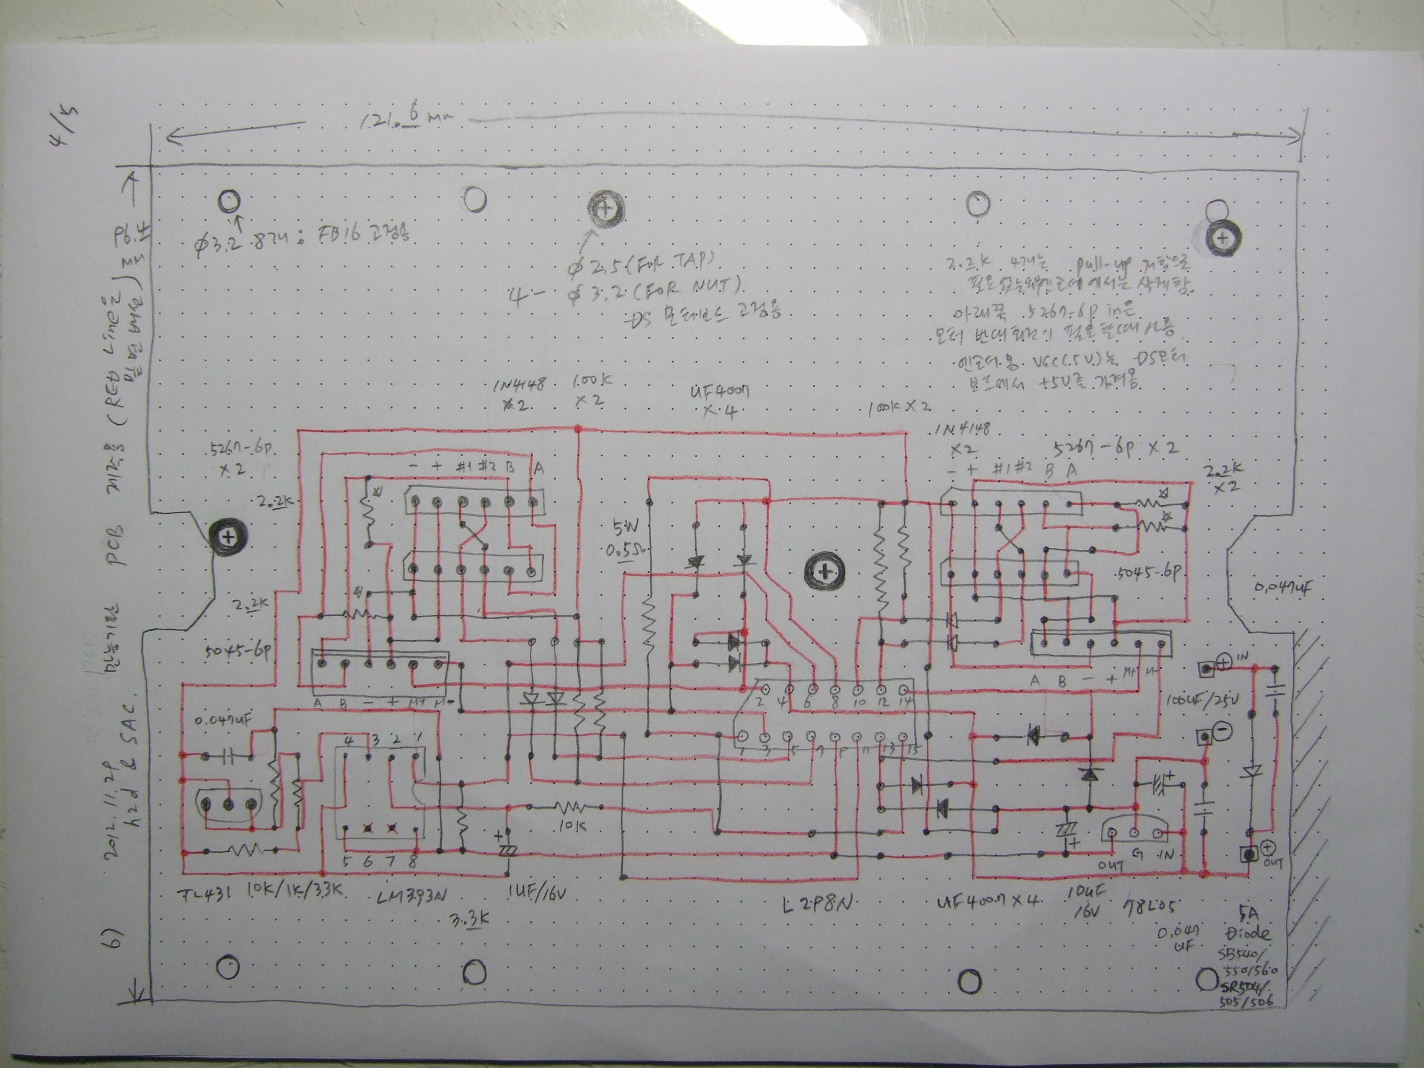 4/5
121.6 mm
Φ3.2 8개: FB16 고정용
Φ2.5(FOR TAP)
4- Φ3.2(FOR NUT)
DS 모터보드 고정용
2.2K 4개는 pull-up 저항으로
아래쪽 5267-6p in은
모터 반대회전이 필요할때 사용
엔코더용 VCC(5V)는 DS모터
보드에서 +5V를 가져옴
1N4148
×2
100K
×2
UF4007
×4
100K×2
1N4148
×2
5267-6p ×2
5267-6p
×2
- + #1 #2 B A
- + #1 #2 B A
2.2K
×2
2.2K
5W
0.5Ω
5045-6p
0.047uF
2.2K
5045-6p
A B - + M+ M-
A B - + M+ M-
⊕ IN
100uF/25V
⊖
0.047uF
2 4 6 8 10 12 14
1 3 5 7 9 11 13 15
4 3 2 1
5 6 7 8
10K
OUT G IN
⊕
OUT
TL431
10K/1K/33K
LM393N
1UF/16V
L298N
UF4007×4
10uF
16V
78L05
3.3K
0.047
UF
5A
Diode
SB540/
550/560
SR504/
505/506
6)
2012.11.29
hzd & SAC.
PCB 제작용 (RED Line은